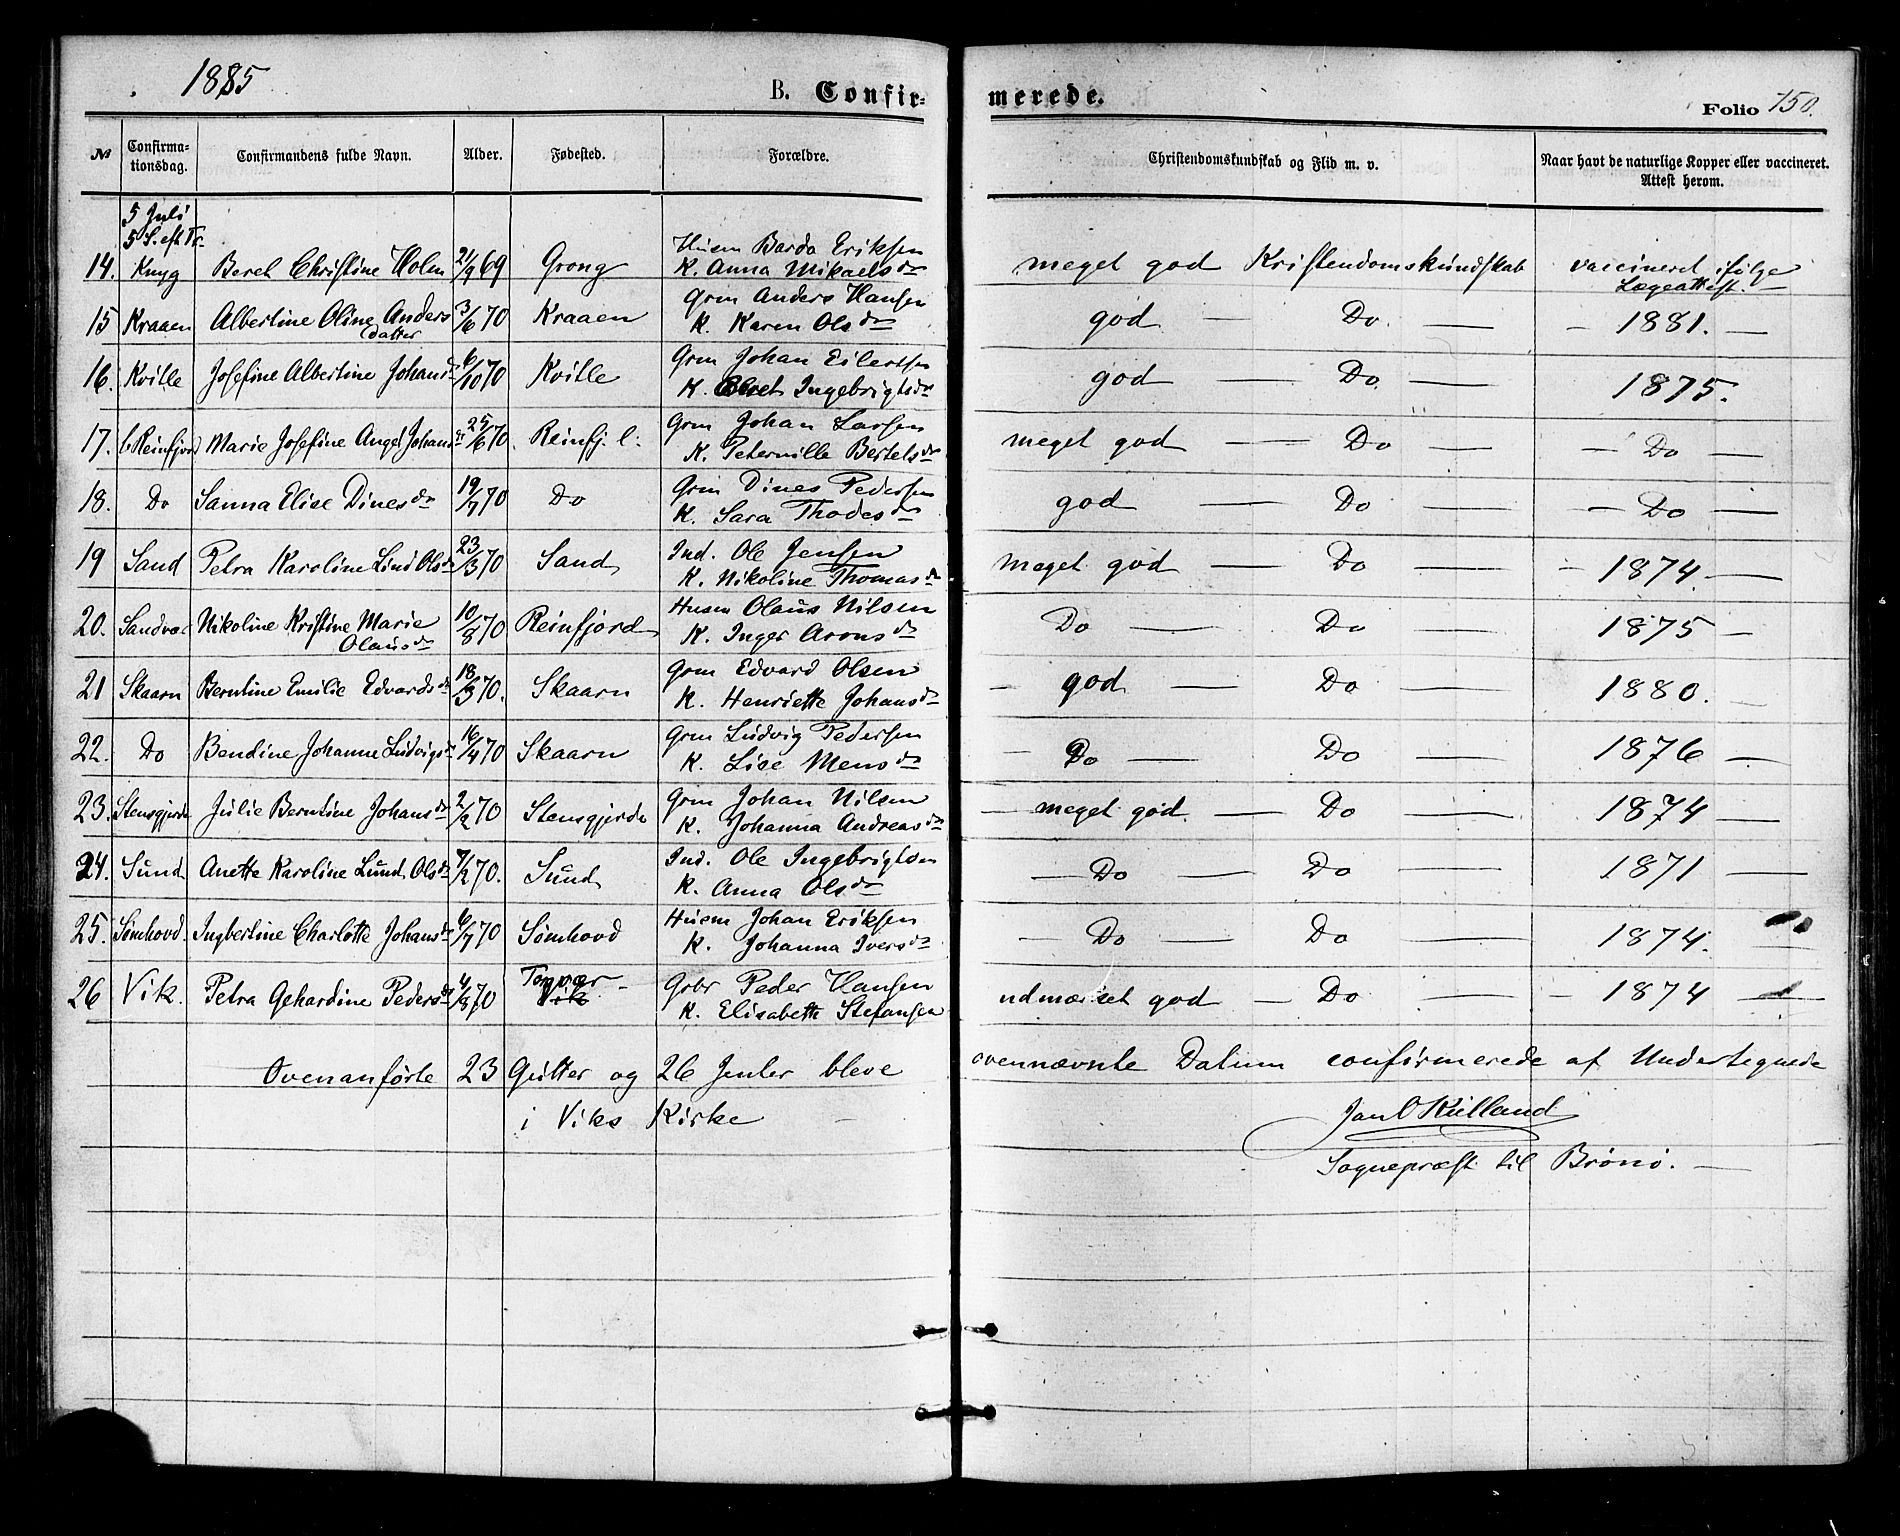 1885
B. Confir-
merede.
Folio 150.
№ Confirma-tionsdag. Confirmandens fulde Navn. Alder. Fødested. Forældre. Christendomskundskab og Flid m. v. Naar havt de naturlige Kopper eller vaccineret. Attest herom.
5 Juli
5 S. eft Tr.
14. Knyg Beret Christine Holm 21/9 69 Grong Husm Bardo Eriksen K. Anna Mikaelsdr meget god Kristendomskundskab vaccineret ifølge Lægeattest. —
15 Kraaen Albertine Oline Andersdatter 3/6 70 Kraaen Grm Anders Hansen K. Karen Olsdr god — Do — - 1881. —
16. Kville Josefine Albertine Johansdr 6/10 70 Kville Grm Johan Eilertsen K. Beret Ingebrigtsdr god — Do — 1875.
17. Reinfjord Marie Josefine Angel Johansdr 25/6 70 Reinfj. l. Grm Johan Larsen K. Peternille Bertelsdr meget god — Do — - Do —
18. Do Sanna Elise Dinesdr 19/7 70 Do Grm Dines Pedersen K. Sara Thodesdr god — Do — - Do —
19 Sand Petra Karoline Lind Olsdr 23/3 70 Sand Ind. Ole Jensen K. Nikoline Thomasdr meget god — Do — - 1874. —
20. Sandvær Nikoline Kristine Marie Olausdr 10/8 70 Reinfjord Husm Olaus Nilsen K. Inger Aronsdr Do — Do — 1875 —
21 Skaarn Berntine Emilie Edvardsdr 18/3 70. Skaarn Grm Edvard Olsen K. Henriette Johansdr - god — Do — 1880.
22. Do Bendine Johanne Ludvigsdr 16/4 70 Skaarn Grm Ludvig Pedersen K. Lise Mensdr - Do — Do — 1876 —
23. Stensgjerde Julie Berntine Johansdr 2/2 70 Stensgjerde Grm Johan Nilsen K. Johanna Andreasdr - meget god. — Do — 1874 —
24. Sund Anette Karoline Lund Olsdr 7/2 70. Sund Ind. Ole Ingebrigtsen K. Anna Olsdr - Do — Do — 1871 —
25. Sømhovd. Ingbertine Charlotte Johansdr 6/7 70 Sømhovd Husm Johan Eriksen K. Johanna Iversdr - Do — Do — 1874. —
26 Vik. Petra Gehardine Pedersdr 4/8 70 Torgvær Vik Grbr Peder Hansen K. Elisabeth Stefansen udmærket god — Do — - 1874 —
Ovenanførte 23 Gutter og 26 Jenter bleve ovennævnte Datum confirmerede af Undertegnede
i Viks Kirke —
Jan C Kielland
Sognepræst til Brønø. —